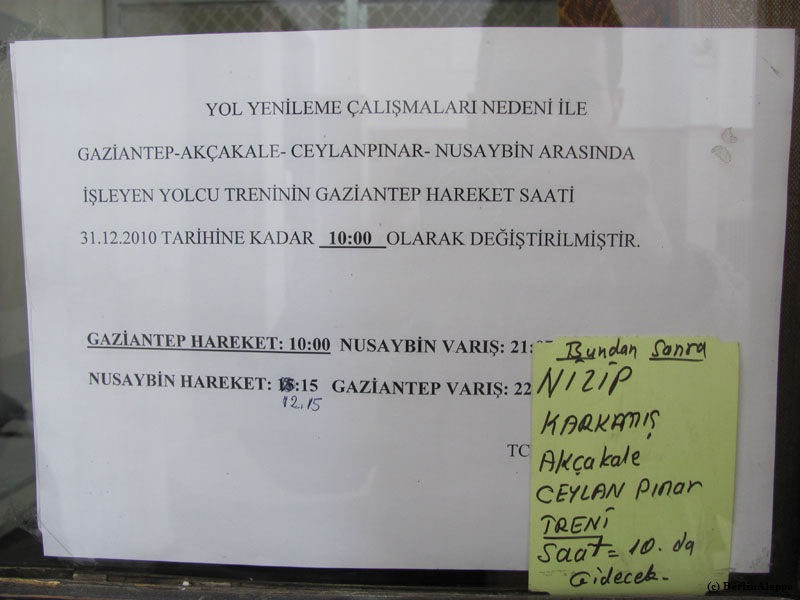 YOL YENİLEME ÇALIŞMALARI NEDENİ İLE
GAZİANTEP-AKÇAKALE- CEYLANPINAR- NUSAYBİN ARASINDA
İŞLEYEN YOLCU TRENİNİN GAZİANTEP HAREKET SAATİ
31.12.2010 TARİHİNE KADAR 10:00 OLARAK DEĞİŞTİRİLMİŞTİR.
GAZİANTEP HAREKET: 10:00 NUSAYBİN VARIŞ:
NUSAYBİN HAREKET: GAZİANTEP VARIŞ: 22
12.15
TC
Bundan Sonra
NIZIP
KARKAMIŞ
Akçakale
CEYLAN Pınar
TRENİ
Saat = 10. da
Gidecek.
(c) BerlinAleppo